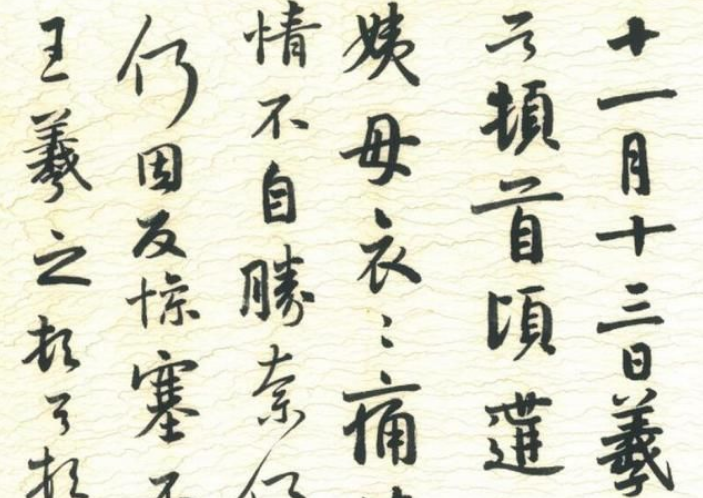 十一月十三日羲
頓首頃遘
姨母哀〻痛
情不自勝奈何
何因反慘塞不
王羲之頓首頓